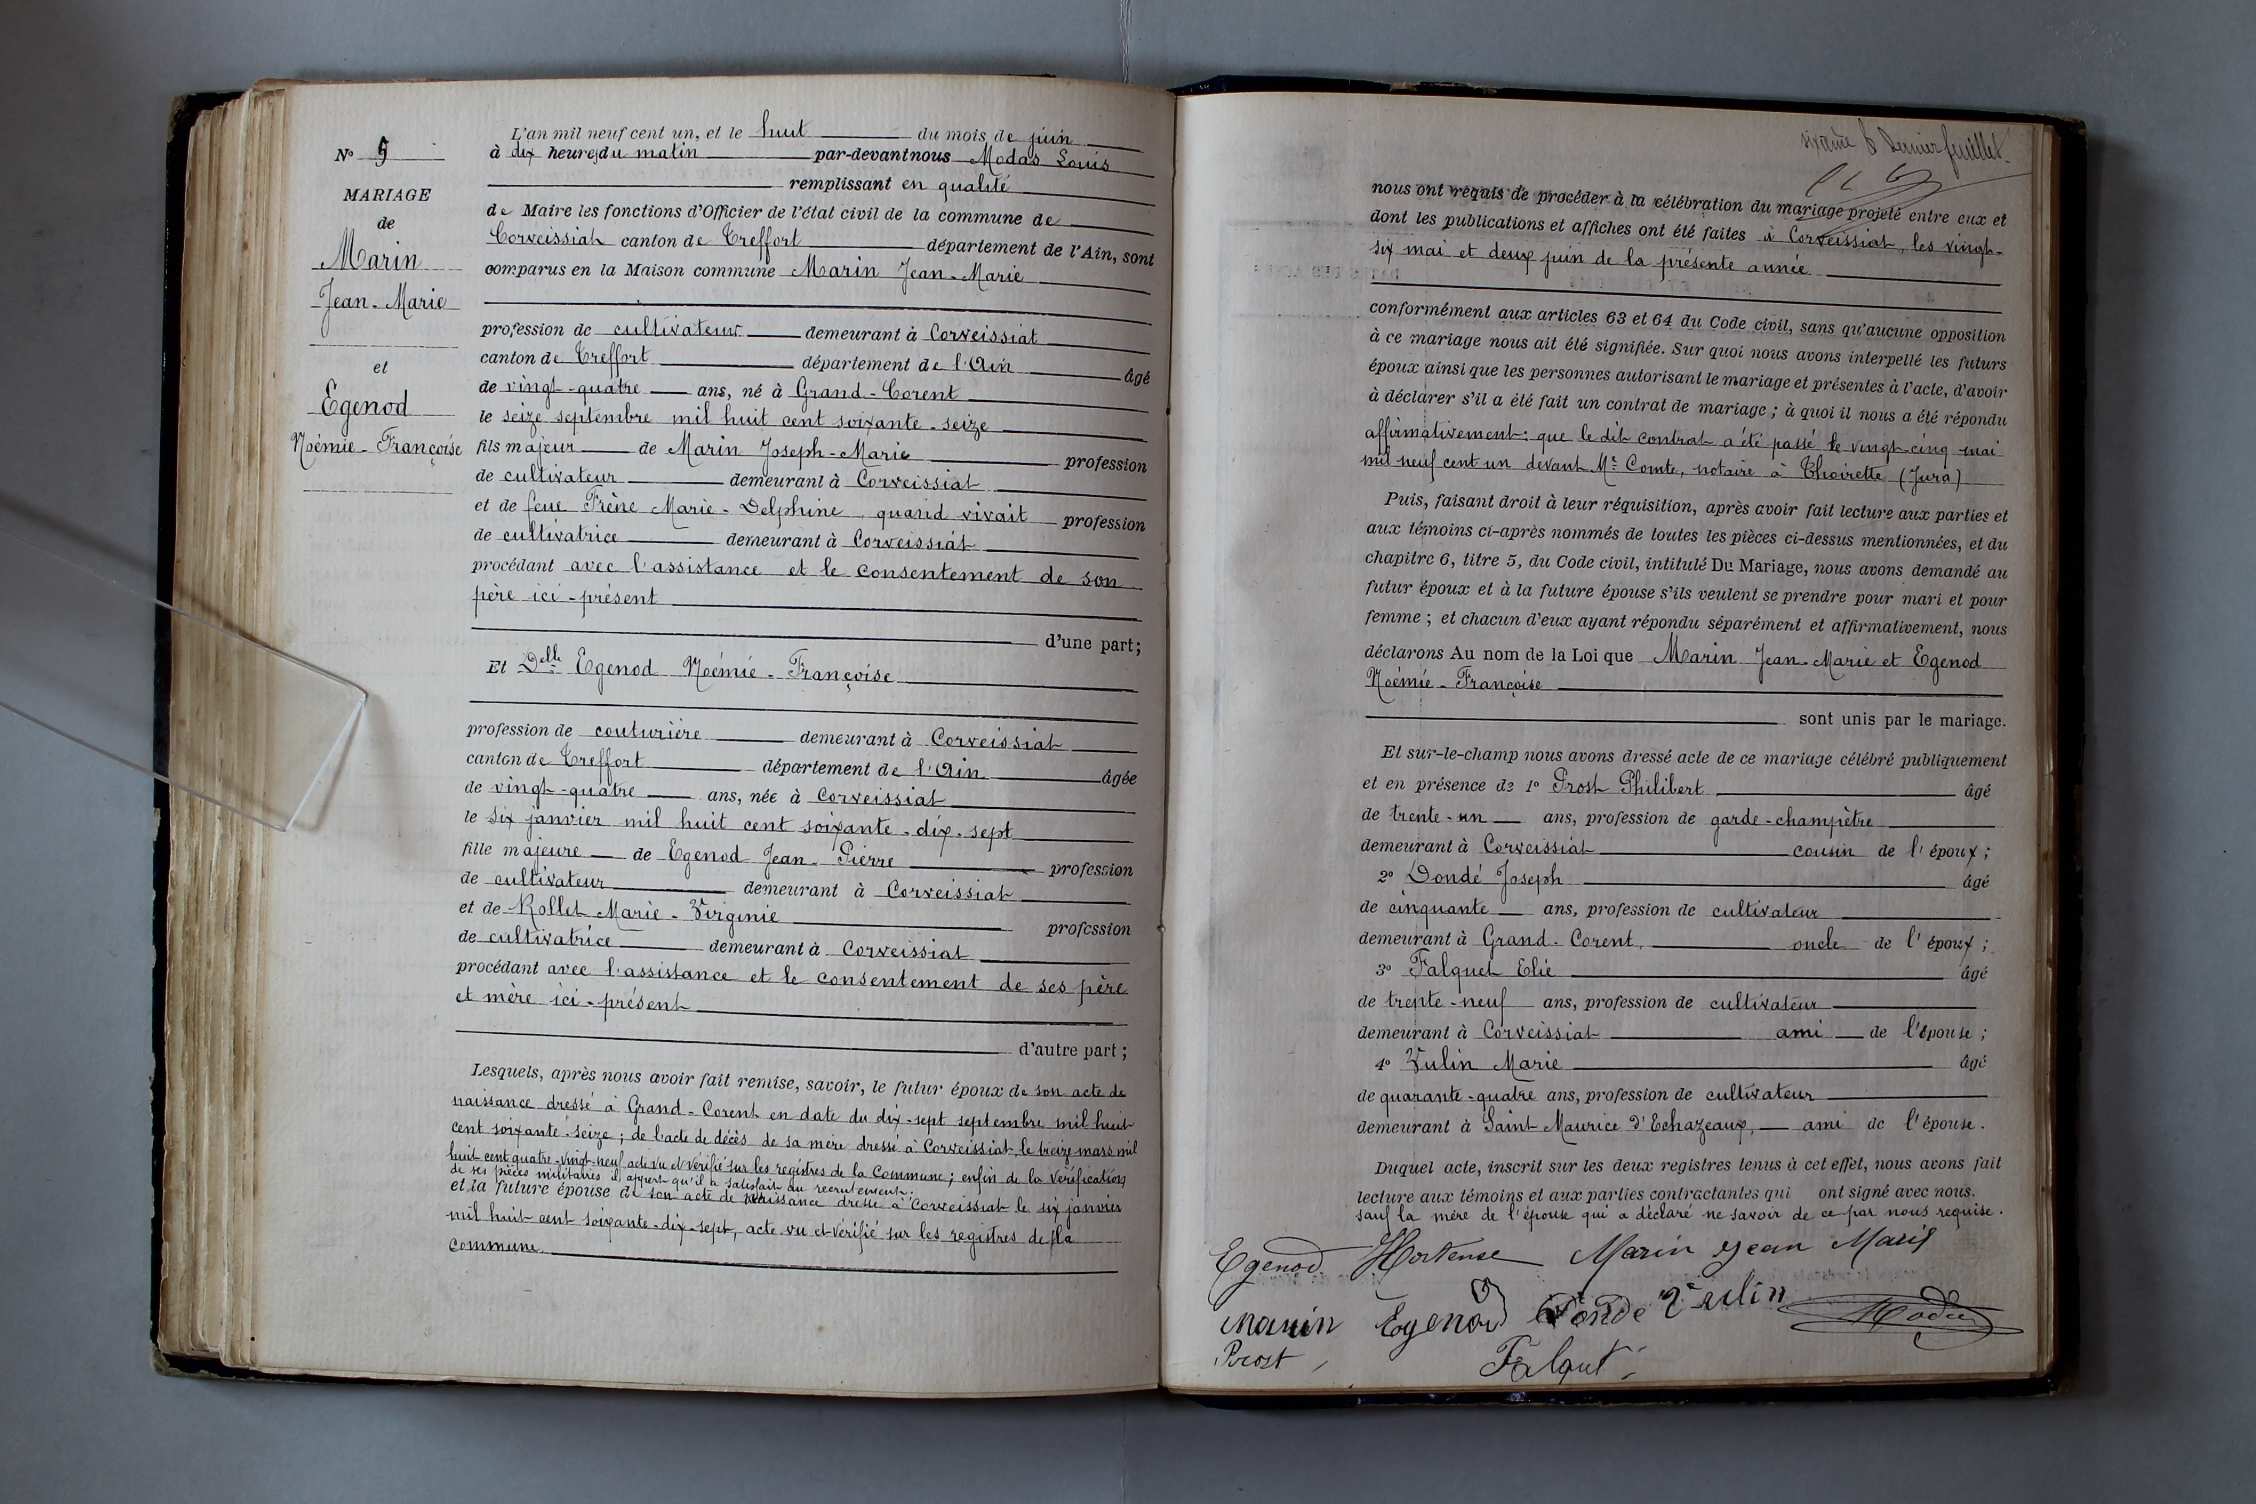 N° 5
MARIAGE
de
Marin
Jean-Marie
et
Egenod
Noémie-Françoise
L'an mil neuf cent un, et le huit du mois de juin
à dix heures du matin par-devant nous Modas Louis
remplissant en qualité
de Maire les fonctions d'Officier de l'état civil de la commune de
Corveissiat canton de Treffort département de l'Ain, sont
comparus en la Maison commune Marin Jean-Marie
profession de cultivateur demeurant à Corveissiat
canton de Treffort département de l'Ain âgé
de vingt-quatre ans, né à Grand-Corent
le seize septembre mil huit cent soixante-seize
fils majeur de Marin Joseph-Marie profession
de cultivateur demeurant à Corveissiat
et de feue Frène Marie-Delphine quand vivait profession
de cultivatrice demeurant à Corveissiat
procédant avec l'assistance et le consentement de son
père ici-présent
d'une part;
Et Delle Egenod Noémie-Françoise
profession de couturière demeurant à Corveissiat
canton de Treffort département de l'Ain âgée
de vingt-quatre ans, née à Corveissiat
le six janvier mil huit cent soixante-dix-sept
fille majeure de Egenod Jean-Pierre profession
de cultivateur demeurant à Corveissiat
et de Rollet Marie-Virginie profession
de cultivatrice demeurant à Corveissiat
procédant avec l'assistance et le consentement de ses père
et mère ici-présent
d'autre part;
Lesquels, après nous avoir fait remise, savoir, le futur époux de son acte de
naissance dressé à Grand-Corent en date du dix-sept septembre mil huit
cent soixante-seize; de l'acte de décès de sa mère dressé à Corveissiat le treize mars mil
huit cent quatre-vingt-neuf acte vu et vérifié sur les registres de la Commune; enfin de la vérification
de ses pièces militaires il appert qu'il a satisfait au recrutement;
et la future épouse de son acte de naissance dressé à Corveissiat le six janvier
mil huit cent soixante-dix-sept, acte vu et vérifié sur les registres de la
commune
sixième & dernier feuillet
nous ont requis de procéder à la célébration du mariage projeté entre eux et
dont les publications et affiches ont été faites à Corveissiat, les vingt-
six mai et deux juin de la présente année
conformément aux articles 63 et 64 du Code civil, sans qu'aucune opposition
à ce mariage nous ait été signifiée. Sur quoi nous avons interpellé les futurs
époux ainsi que les personnes autorisant le mariage et présentes à l'acte, d'avoir
à déclarer s'il a été fait un contrat de mariage; à quoi il nous a été répondu
affirmativement: que le dit contrat a été passé le vingt-cinq mai
mil neuf cent un devant Me Comte, notaire à Thoirette (Jura)
Puis, faisant droit à leur réquisition, après avoir fait lecture aux parties et
aux témoins ci-après nommés de toutes les pièces ci-dessus mentionnées, et du
chapitre 6, titre 5, du Code civil, intitulé Du Mariage, nous avons demandé au
futur époux et à la future épouse s'ils veulent se prendre pour mari et pour
femme; et chacun d'eux ayant répondu séparément et affirmativement, nous
déclarons Au nom de la Loi que Marin Jean-Marie et Egenod
Noémie-Françoise
sont unis par le mariage.
Et sur-le-champ nous avons dressé acte de ce mariage célébré publiquement
et en présence de 1° Prost Philibert âgé
de trente-un ans, profession de garde-champètre
demeurant à Corveissiat cousin de l'époux;
2° Dondé Joseph âgé
de cinquante ans, profession de cultivateur
demeurant à Grand-Corent, oncle de l'époux;
3° Falquet Elie âgé
de trente-neuf ans, profession de cultivateur
demeurant à Corveissiat ami de l'épouse;
4° Vulin Marie âgé
de quarante-quatre ans, profession de cultivateur
demeurant à Saint Maurice d'Echazeaux, ami de l'épouse.
Duquel acte, inscrit sur les deux registres tenus à cet effet, nous avons fait
lecture aux témoins et aux parties contractantes qui ont signé avec nous.
sauf la mère de l'épouse qui a déclaré ne savoir de ce par nous requise.
Egenod Hortense Marin Jean Marie
Marin Egenod Dondé Vulin Modas
Prost Falqut